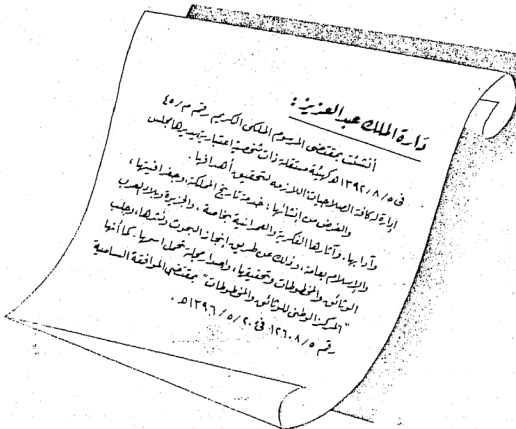 دارة الملك عبد العزيز :
أنشئت بمقتضى المرسوم الملكي الكريم رقم م/٤٥
في ١٣٩٢/٨/٥ هـ كهيئة مستقلة ذات شخصية اعتبارية يديرها مجلس
إدارة له كافة الصلاحيات اللازمة لتحقيق أهدافها .
والغرض من إنشائها : خدمة تاريخ المملكة ، وجغرافيتها ،
وآدابها . وآثارها الفكرية والعمرانية بخاصة ، والجزيرة وبلاد العرب
والإسلام بعامة ، وذلك عن طريق إنجاز البحوث ونشرها ، وجلب
الوثائق والمخطوطات وتحقيقها ، وإصدار مجلة تحمل اسمها . كما أنها
"المركز الوطني للوثائق والمخطوطات" بمقتضى الموافقة السامية
رقم ١٢٦٠٨/٥ في ١٣٩٦/٥/٢٠ هـ .